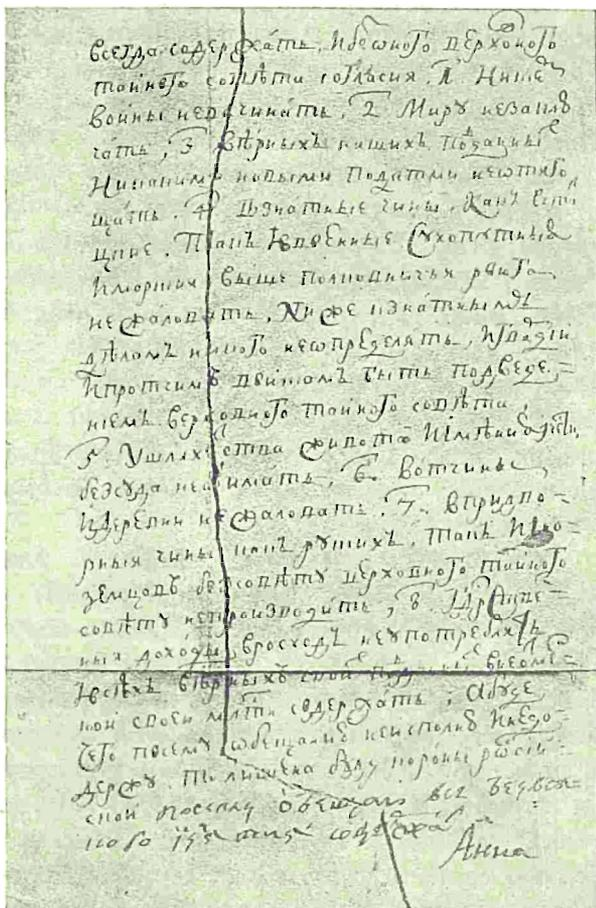 всегда содержать, и без оного верховного
тайного совета согласия. 1. Ни с кем
войны невсчинать, 2 Миру незаклю
чать, 3 верных наших подданных
Никакими новыми податми неотяго
щать. 4 в знатные чины, как в стац
цкие, так и военные сухопутные
и морские выше полковничья ранга
не жаловать, ниже к знатным
делам никого не определять, и гвардии
и протчим войскам быть под веде-
нием верховного тайного совета,
5. У шляхетства живота и имения и чести
без суда неотимать, 6. вотчины
и деревни не жаловать, 7. в придво-
рные чины как руских, так и ино-
земцов без совету верховного тайного
совету не производить, 8. Государстве-
ные доходы в росход не употреблять
и всех верных своих подданных в неотме-
ной своей милости содержать, а буде
чего по сему обещанию неисполню и недо-
держу, то лишена буду короны росий-
ской
Анна